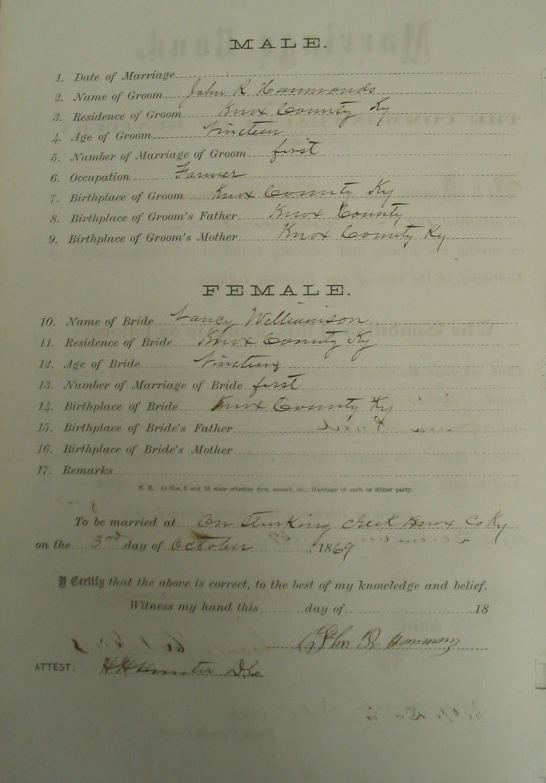 MALE.
1. Date of Marriage
2. Name of Groom John R Hammonds
3. Residence of Groom Knox County Ky
4. Age of Groom Nineteen
5. Number of Marriage of Groom first
6. Occupation Farmer
7. Birthplace of Groom Knox County Ky
8. Birthplace of Groom's Father Knox County
9. Birthplace of Groom's Mother Knox County Ky
FEMALE.
10. Name of Bride Nancy Williamson
11. Residence of Bride Knox County Ky
12. Age of Bride Nineteen
13. Number of Marriage of Bride first
14. Birthplace of Bride Knox County Ky
15. Birthplace of Bride's Father
16. Birthplace of Bride's Mother
17. Remarks
N. B. At Nos. 5 and 13 state whether first, second, etc., Marriage of each or either party.
To be married at On Stinking Creek Knox Co Ky
on the 3rd day of October, 1869
I Certify that the above is correct, to the best of my knowledge and belief.
Witness my hand this day of 18
John R Hammons
ATTEST: H H Hunter D.C.